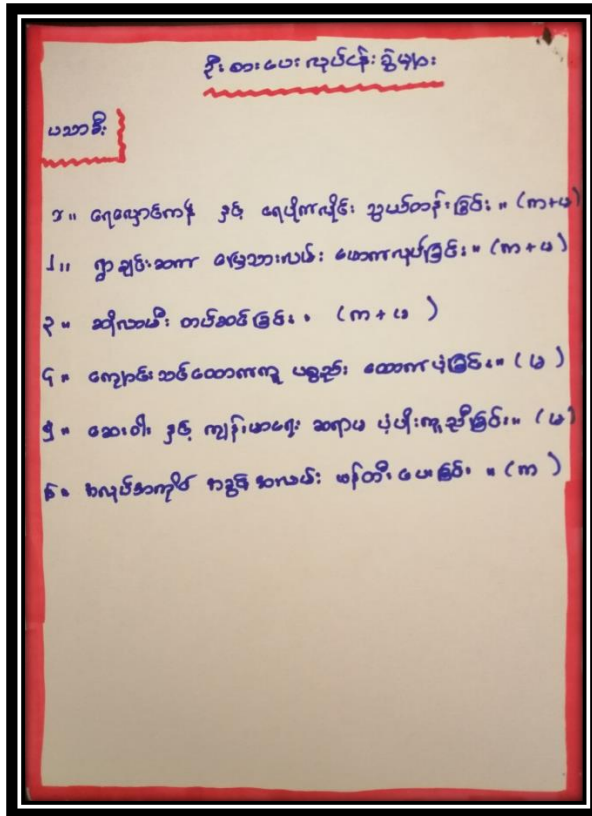 ဦးစားပေးလုပ်ငန်းခွဲများ
ပသာခီး
၁။ ရေလှောင်ကန် နှင့် ရေပိုက်လိုင်း သွယ်တန်းခြင်း။ (က+မ)
၂။ ရွာချင်းဆက် မြေသားလမ်း ဖောက်လုပ်ခြင်း။ (က+မ)
၃။ ဆိုလာမီး တပ်ဆင်ခြင်း။ (က+မ)
၄။ ကျောင်းသင်ထောက်ကူ ပစ္စည်း ထောက်ပံ့ခြင်း။ (မ)
၅။ ဆေးဝါး နှင့် ကျန်းမာရေး ဆရာမ ပံ့ပိုးကူညီခြင်း။ (မ)
၆။ အလုပ်အကိုင် အခွင့်အလမ်း ဖန်တီးပေးခြင်း။ (က)